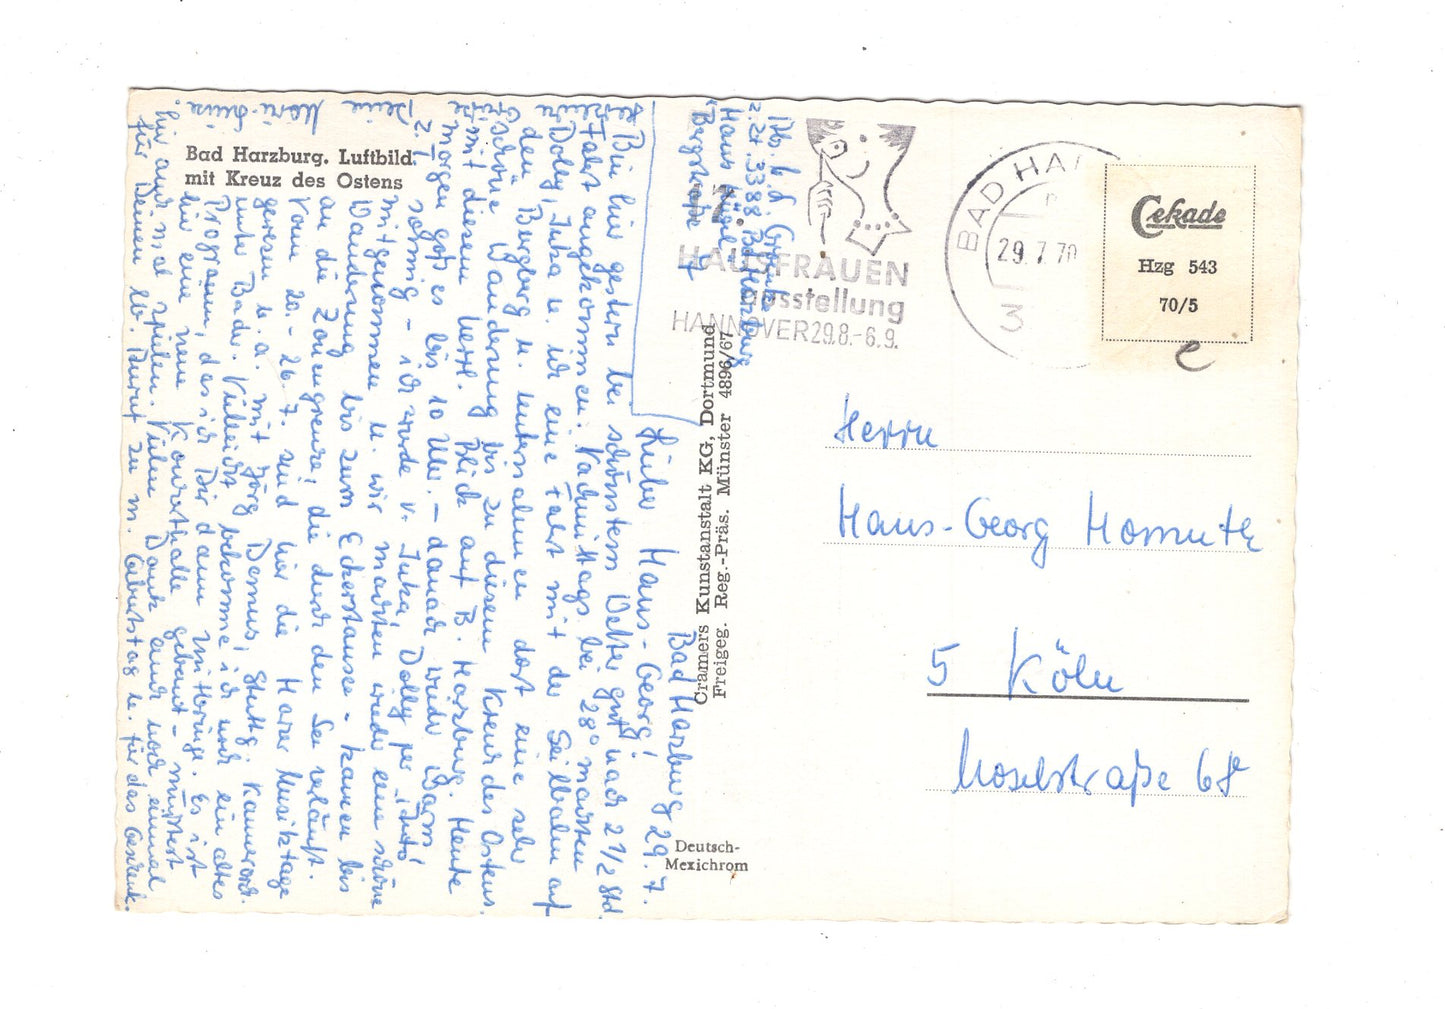 Bad Harzburg. Luftbild
mit Kreuz des Ostens
HAUSFRAUEN
ausstellung
HANNOVER 29.8.-6.9.
BAD HA
29.7.70
3
Cekade
Hzg 543
70/5
e
Herrn
Hans-Georg Homuth
5 Köln
Moselstraße 68
Cramers Kunstanstalt KG, Dortmund
Freigeg. Reg.-Präs. Münster 4896/67
Deutsch-
Mexichrom
z. Zt. 3388 Bad Harzburg
Haus Hügel
Bergstraße 7
Bad Harzburg 29.7.
Lieber Hans-Georg!
Bin hier gestern bei schönstem Wetter gut nach 2 1/2 Std
Fahrt angekommen. Nachmittags bei 28° machten
Dolly, Inka u. ich eine Fahrt mit der Seilbahn auf
den Burgberg u. unternahmen dort eine sehr
schöne Wanderung bis zu diesem Kreuz des Ostens
mit diesem herrl. Blick auf B. Harzburg. Heute
morgen goß es bis 10 Uhr. - danach wieder warm
sonnig - ich wurde v. Inka, Dolly per Auto
mitgenommen u. wir machten wieder eine schöne
Wanderung bis zum Eckerstausee - kamen bis
an die Zonengrenze, die durch den See verläuft.
Vom 20.-26.7. sind hier die Harzer Musiktage
gewesen u. a. mit Jörg Demus, Stuttg. Kammerorch.
unter Bader. Vielleicht bekomme ich noch ein altes
Programm, das ich Dir dann mitbringe. Es ist
hier eine neue Konzerthalle gebaut - müßtest
hier auch mal spielen. Vielen Dank auch noch einmal
für Deinen lb. Anruf zu m. Geburtstag u. für das Geschenk.
Herzliche
Grüße
Deine